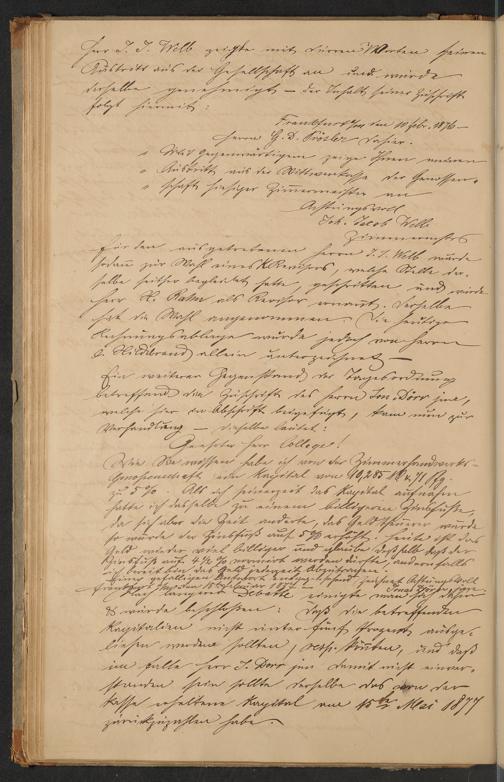 Herr J. J. Welb zeigte mit kurzen Worten seinen
Austritt aus der Gesellschaft an und wurde
derselbe genehmigt – der Inhalt seiner Zuschrift
folgt hiermit:
Frankfurt a/m den 10 febr. 1876 –
Herrn G. D. dahier.
" Mit Gegenwärtigem zeige Ihnen meinen
" Austritt aus der Wittwenkasse der Genossen-
" schaft hiesiger Zimmermeister an
Achtungsvoll
Joh. Jacob Welb
Zimmermstr
Für den ausgetretenen Herrn J. J. Welb wurde
sodann zur Wahl eines Revisors, welche Stelle der-
selbe seither begleitet hatte, geschritten und wurde
Herr als Revisor ernannt. Derselbe
hat die Wahl angenommen – Die heutige
Rechnungsablage wurde jedoch von Herrn
Hildebrand allein unterzeichnet –
Ein weiterer Gegenstand der Tagesordnung
betreffend die Zuschrift des Herrn Jon. Dörr jun,
welche hier in Abschrift beigefügt, kam nun zur
Verhandlung – dieselbe lautet:
Geehrter Herr College!
Wie Sie wissen habe ich von der Zimmerhandwerks-
Genossenschaft ein Kapital von 10,285 M u. 71 Pfg.
zu 5 %. Als ich seinerzeit das Kapital aufnahm
hatte ich dasselbe zu einem billigeren Zinsfuße,
da sich aber die Zeit änderte, das Geld theuerer wurde
so wurde der Zinsfuß auf 5 % erhöht. heute ist das
Geld wieder viel billiger und glaube deßhalb daß der
Zinsfuß auf 4 ½ % reduzirt werden dürfte, andernfalls
ich bereit bin das Geld jederzeit abzutragen.
Einer gefälligen Antwort entgegensehend zeichnet Achtungsvoll
Frankfurt a/m den Jonas Dörr jun
Nach längerer Debatte einigte man sich dahin
& wurde beschlossen: daß die betreffenden
Kapitalien nicht unter fünf Prozent ausge-
liehen werden sollten, könnten, und daß
im Falle Herr J. Dörr jun damit nicht einver-
standen sein sollte derselbe das von der
Kasse erhaltene Kapital am 15ten Mai 1877
zurückzuzahlen habe. –